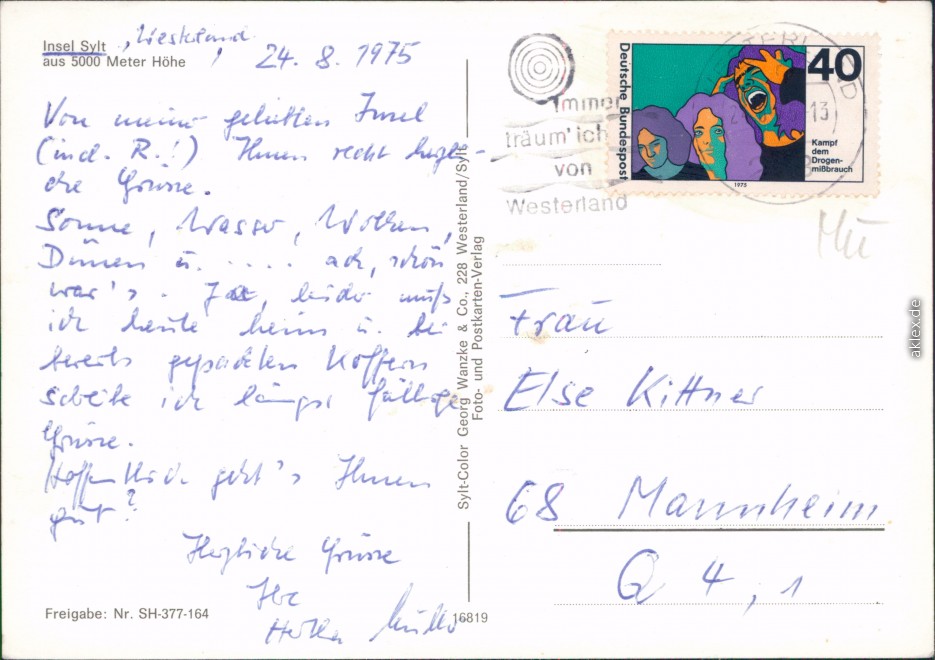 Insel Sylt, Westerland,
aus 5000 Meter Höhe
24. 8. 1975
Von meiner geliebten Insel
(incl. R.!) Ihnen recht herzli-
che Grüsse.
Sonne, Wasser, Wolken,
Dünen u. .... ach, schön
war's. Ja, leider muß
ich heute heim u. bei
bereits gepackten Koffern
schreibe ich längst fällige
Grüsse.
Hoffentlich geht's Ihnen
gut?
Herzliche Grüsse
Ihre
Müller
Freigabe: Nr. SH-377-164
16819
Sylt-Color Georg Wanzke & Co., 228 Westerland/Sylt
Foto- und Postkarten-Verlag
Immer
träum' ich
von
Westerland
Deutsche Bundespost
40
Kampf
dem
Drogen-
mißbrauch
1975
13
Mü
Frau
Else Kittner
68 Mannheim
Q 4, 1
aklex.de